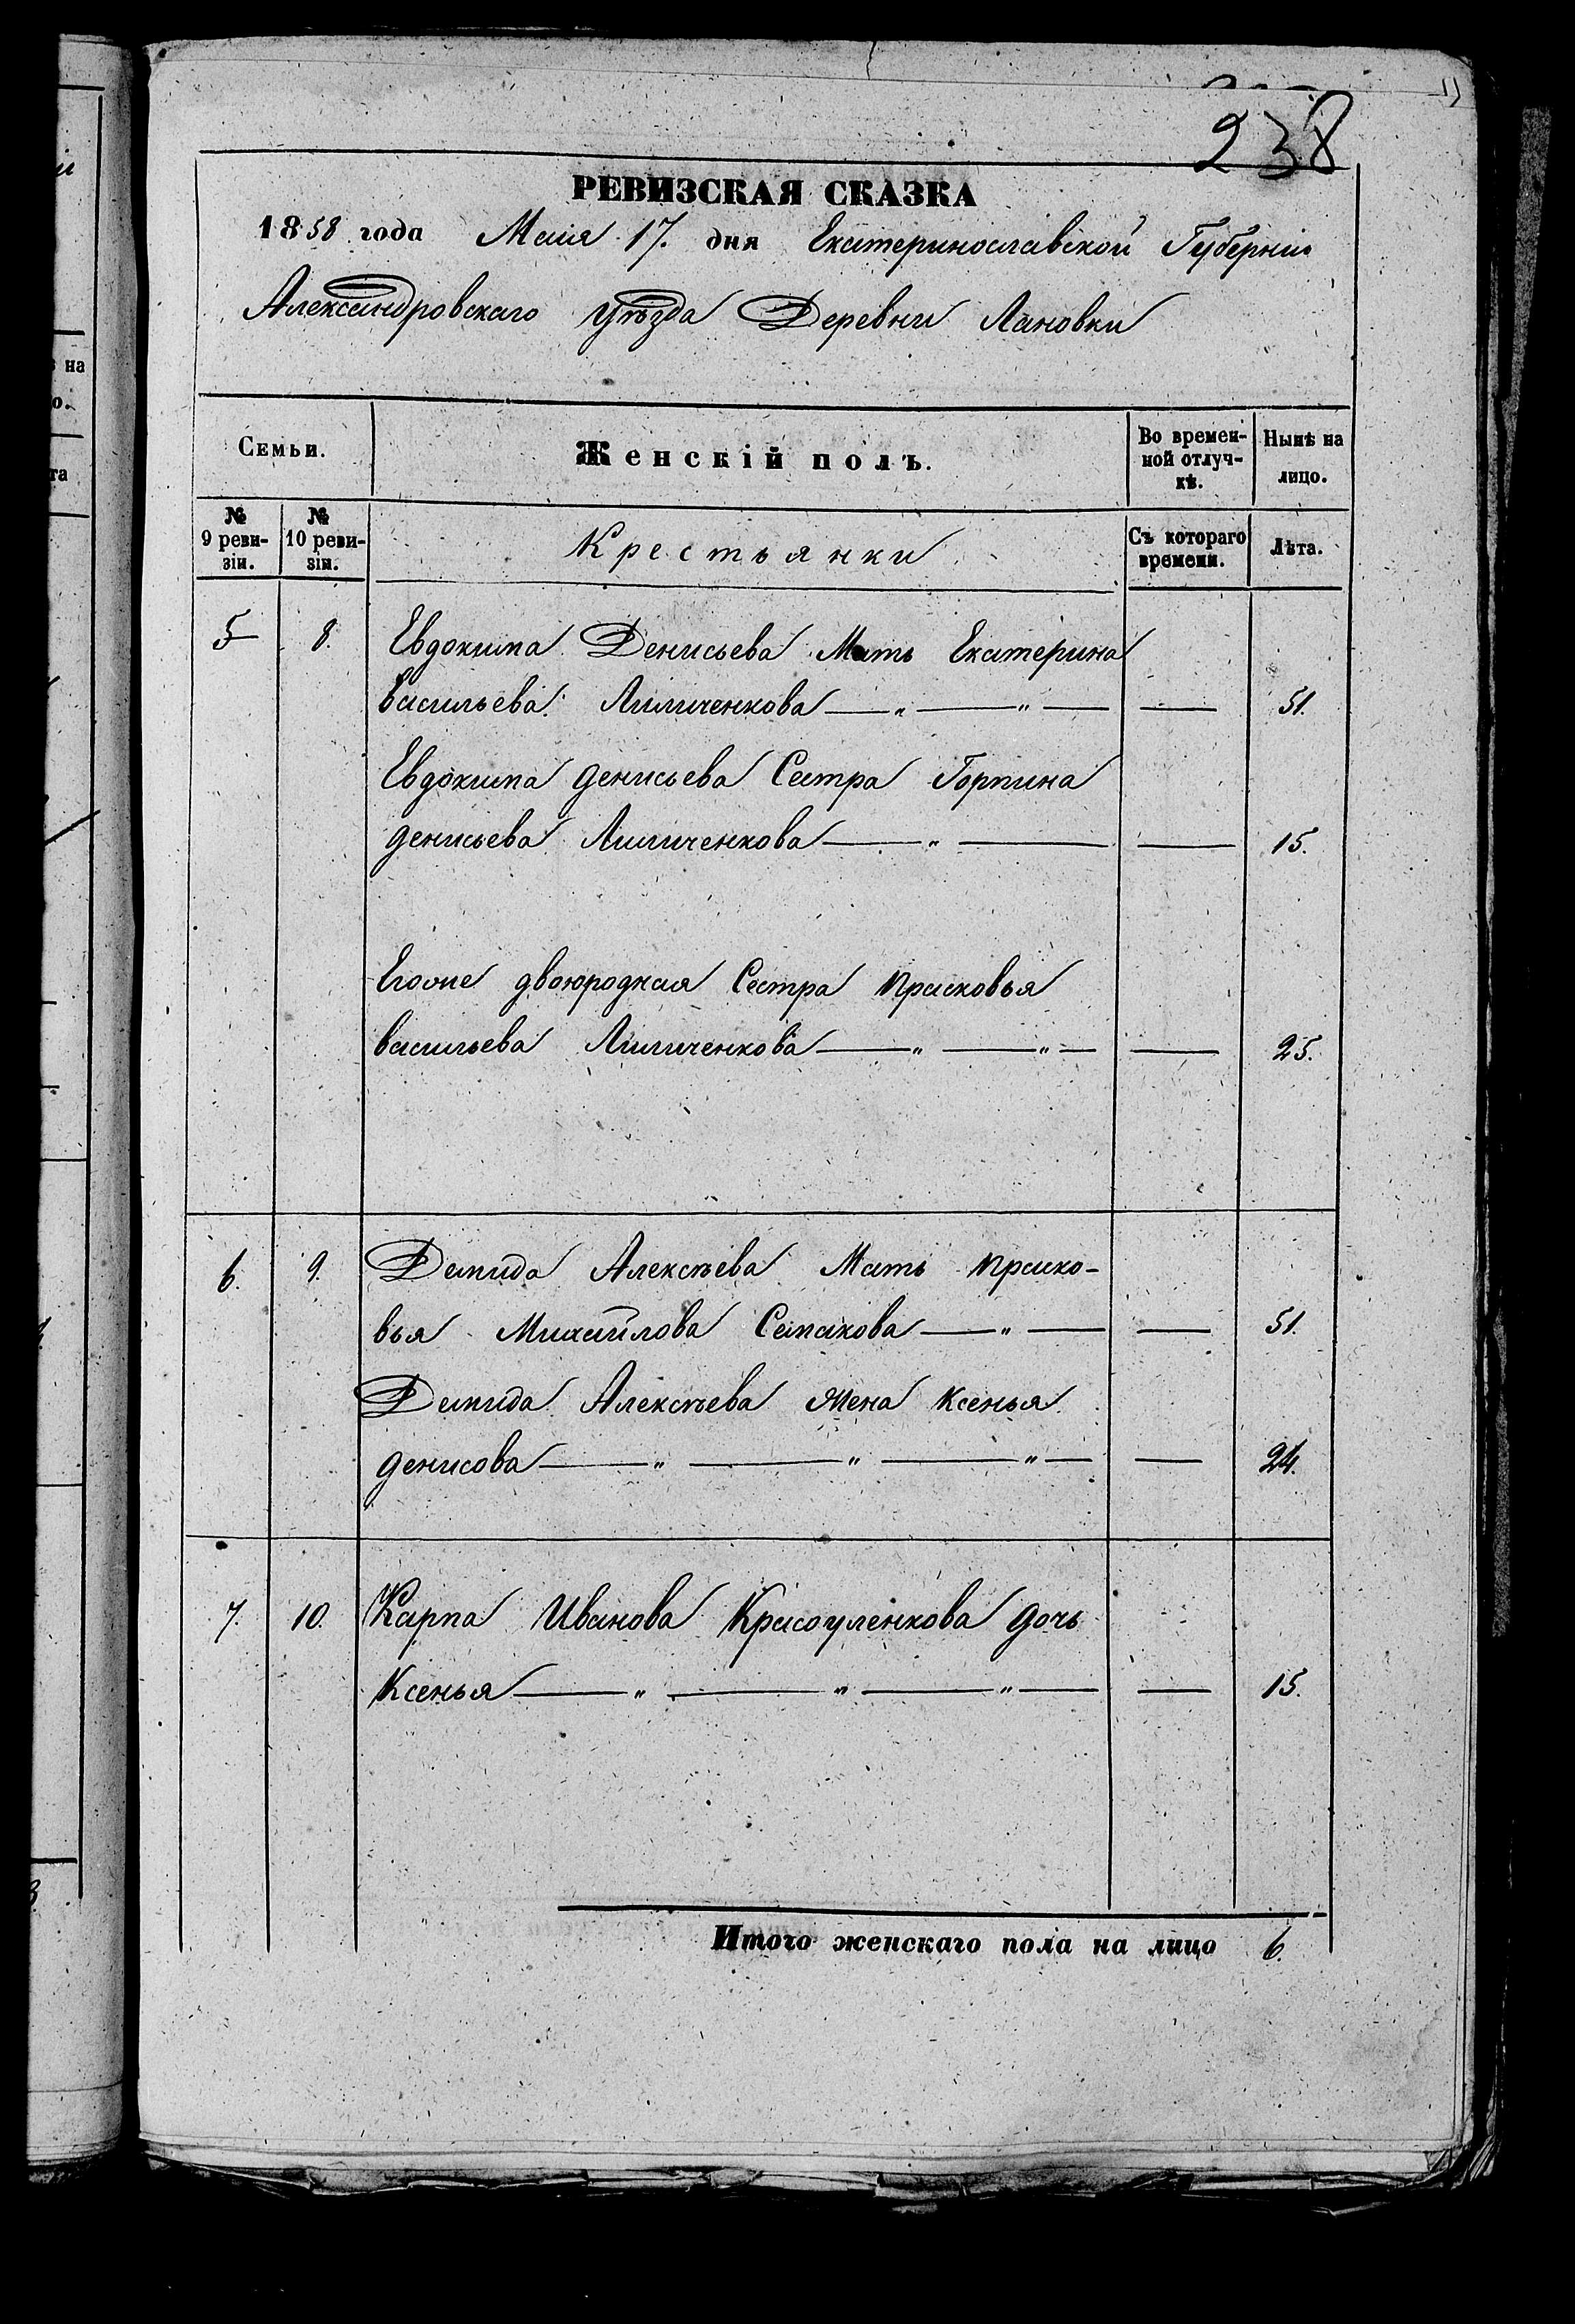 238
РЕВИЗСКАЯ СКАЗКА
1858 года Маія 17. дня Екатеринославской Губерніи
Александровскаго Уѣзда Деревни Лановки
Семьи. Женскій полъ. Во времен-ной отлуч-кѣ. Нынѣ на лицо.
№ 9 реви-зіи. № 10 реви-зіи. Крестьянки Съ котораго времени. Лѣта.
5 8. Евдокима Денисьева Мать Екатерина
васильева Лиличенкова — „ — „ — — 51.
Евдокима денисьева Сестра Горпина
денисьева Лиличенкова — „ — — 15.
Егоже двоюродная Сестра прасковья
васильева Лиличенкова — „ — „ — — 25.
6. 9. Демида Алексѣева Мать праско-
вья Михайлова Семакова — „ — — 51.
Демида Алексѣева жена Ксенья
денисова — „ — „ — „ — — 24.
7. 10. Карпа Иванова Красоуленкова дочь
Ксенья — „ — „ — „ — — 15.
Итого женскаго пола на лицо 6.